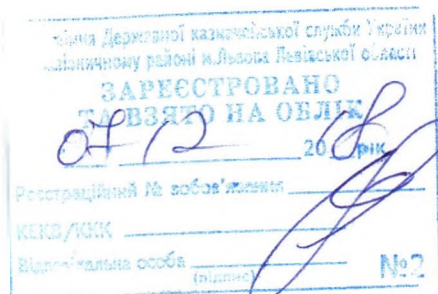 Державної казначейської служби України
районі м.Львова Львівської області
ЗАРЕЄСТРОВАНО
ТА ВЗЯТО НА ОБЛІК
07 12 2018 рік
Реєстраційний № зобов'язання
КЕКВ/ККК
Відповідальна особа
(підпис)
№2